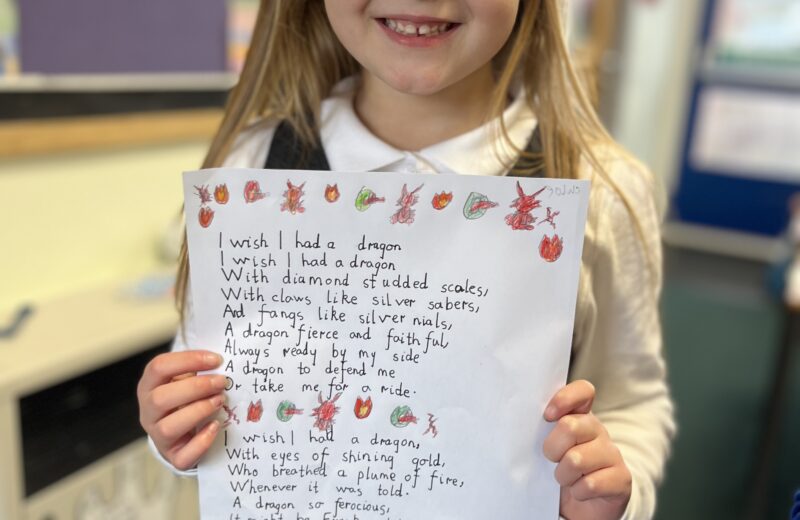 I wish I had a dragon
I wish I had a dragon
With diamond studded scales,
With claws like silver sabers,
And fangs like silver nials,
A dragon fierce and faithful,
Always ready by my side
A dragon to defend me
Or take me for a ride.
I wish I had a dragon,
With eyes of shining gold,
Who breathed a plume of fire,
Whenever it was told.
A dragon so ferocious,
It might be